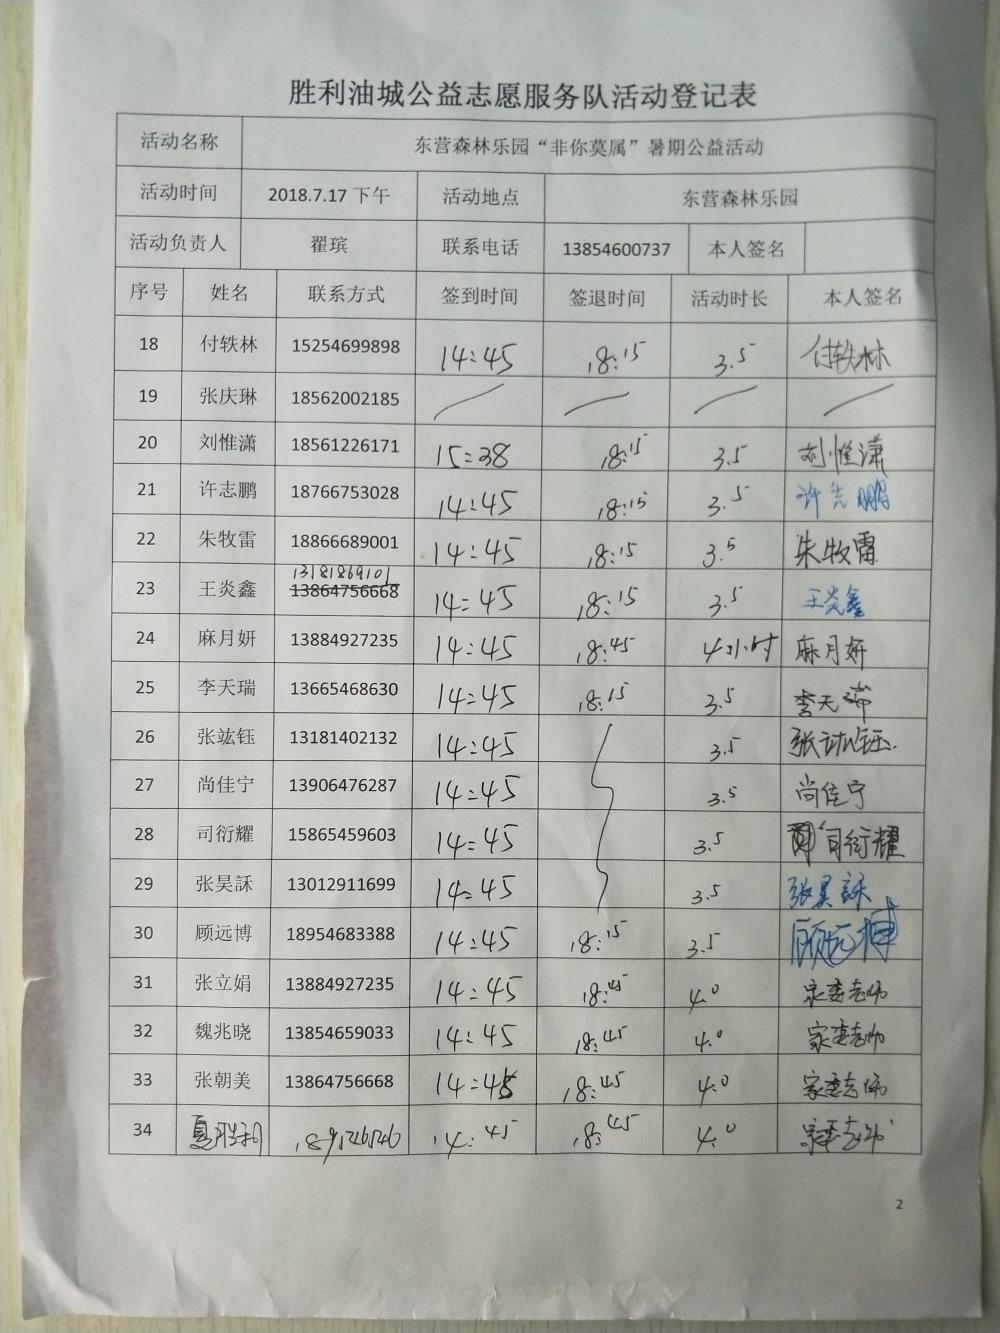 胜利油城公益志愿服务队活动登记表
活动名称 东营森林乐园“非你莫属”暑期公益活动
活动时间 2018.7.17 下午 活动地点 东营森林乐园
活动负责人 翟瑸 联系电话 13854600737 本人签名
序号 姓名 联系方式 签到时间 签退时间 活动时长 本人签名
18 付轶林 15254699898 14:45 18:15 3.5 付轶林
19 张庆琳 18562002185
20 刘惟潇 18561226171 15:38 18:15 3.5 刘惟潇
21 许志鹏 18766753028 14:45 18:15 3.5 许志鹏
22 朱牧雷 18866689001 14:45 18:15 3.5 朱牧雷
13181869101
23 王炎鑫 13864756668 14:45 18:15 3.5 王炎鑫
24 麻月妍 13884927235 14:45 18:45 4小时 麻月妍
25 李天瑞 13665468630 14:45 18:15 3.5 李天瑞
26 张竑钰 13181402132 14:45 3.5 张竑钰
27 尚佳宁 13906476287 14:45 3.5 尚佳宁
28 司衍耀 15865459603 14:45 3.5 司衍耀
29 张昊訸 13012911699 14:45 3.5 张昊訸
30 顾远博 18954683388 14:45 18:15 3.5 顾远博
31 张立娟 13884927235 14:45 18:45 4.0 家委老师
32 魏兆晓 13854659033 14:45 18:45 4.0 家委老师
33 张朝美 13864756668 14:45 18:45 4.0 家委老师
34 夏胜利 14:45 18:45 4.0 家委老师
2